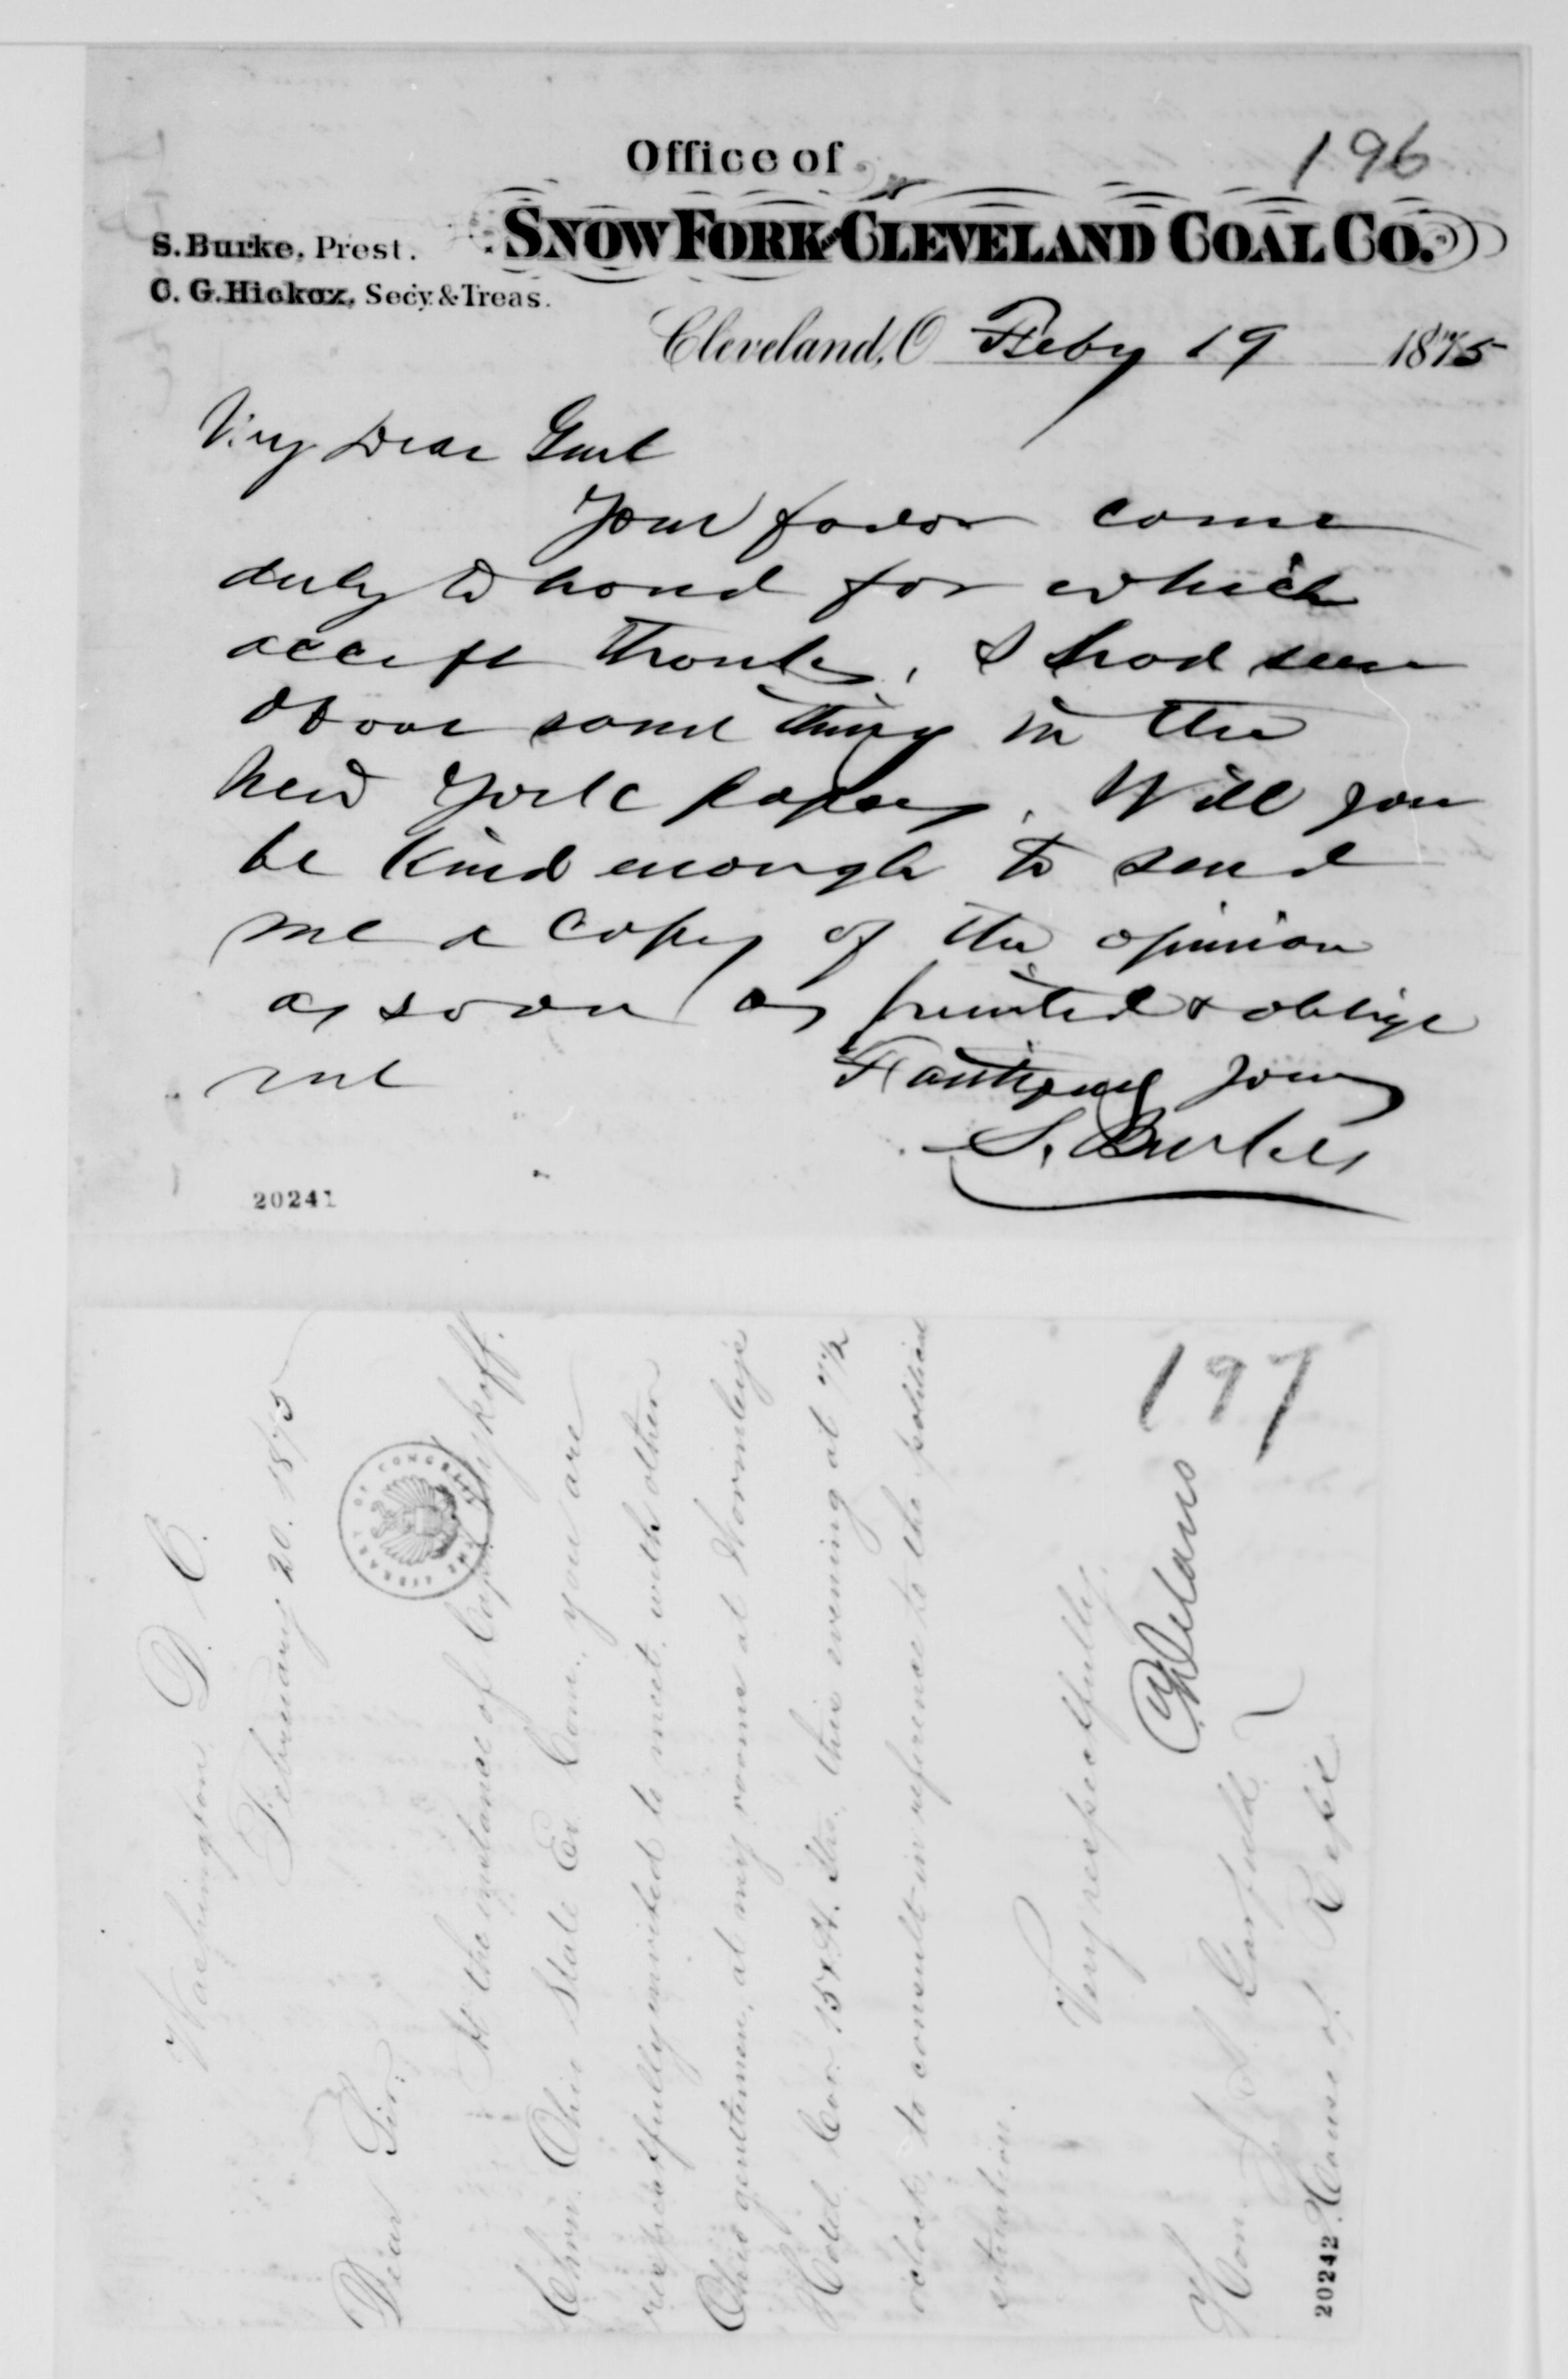 196
Office of
SNOW FORK AND CLEVELAND COAL CO.
S. Burke, Prest.
C. G. Hickox, Secy. & Treas.
Cleveland, O Feby 19 1875
My Dear Genl
Your favor came
duly to hand for which
accept thanks. I had seen
some thing in the
New York papers. Will you
be kind enough to send
me a copy of the opinion
as soon as printed & oblige
me Faithfully Yours
S. Burke
20241
197
Washington D. C.
February 20. 1875
Dear Sir:
At the instance of Capt. Wykoff.
Chrn. Ohio State Ex. Com., you are
respectfully invited to meet, with other
Ohio gentlemen, at my rooms at Wormleys
Hotel Cor. 15 & H. Sts. this evening at 7 1/2
oclock, to consult in reference to the political
situation.
Very respectfully,
C Delano
Hon. J. A. Garfield
House of Reps
20242
THE LIBRARY OF CONGRESS